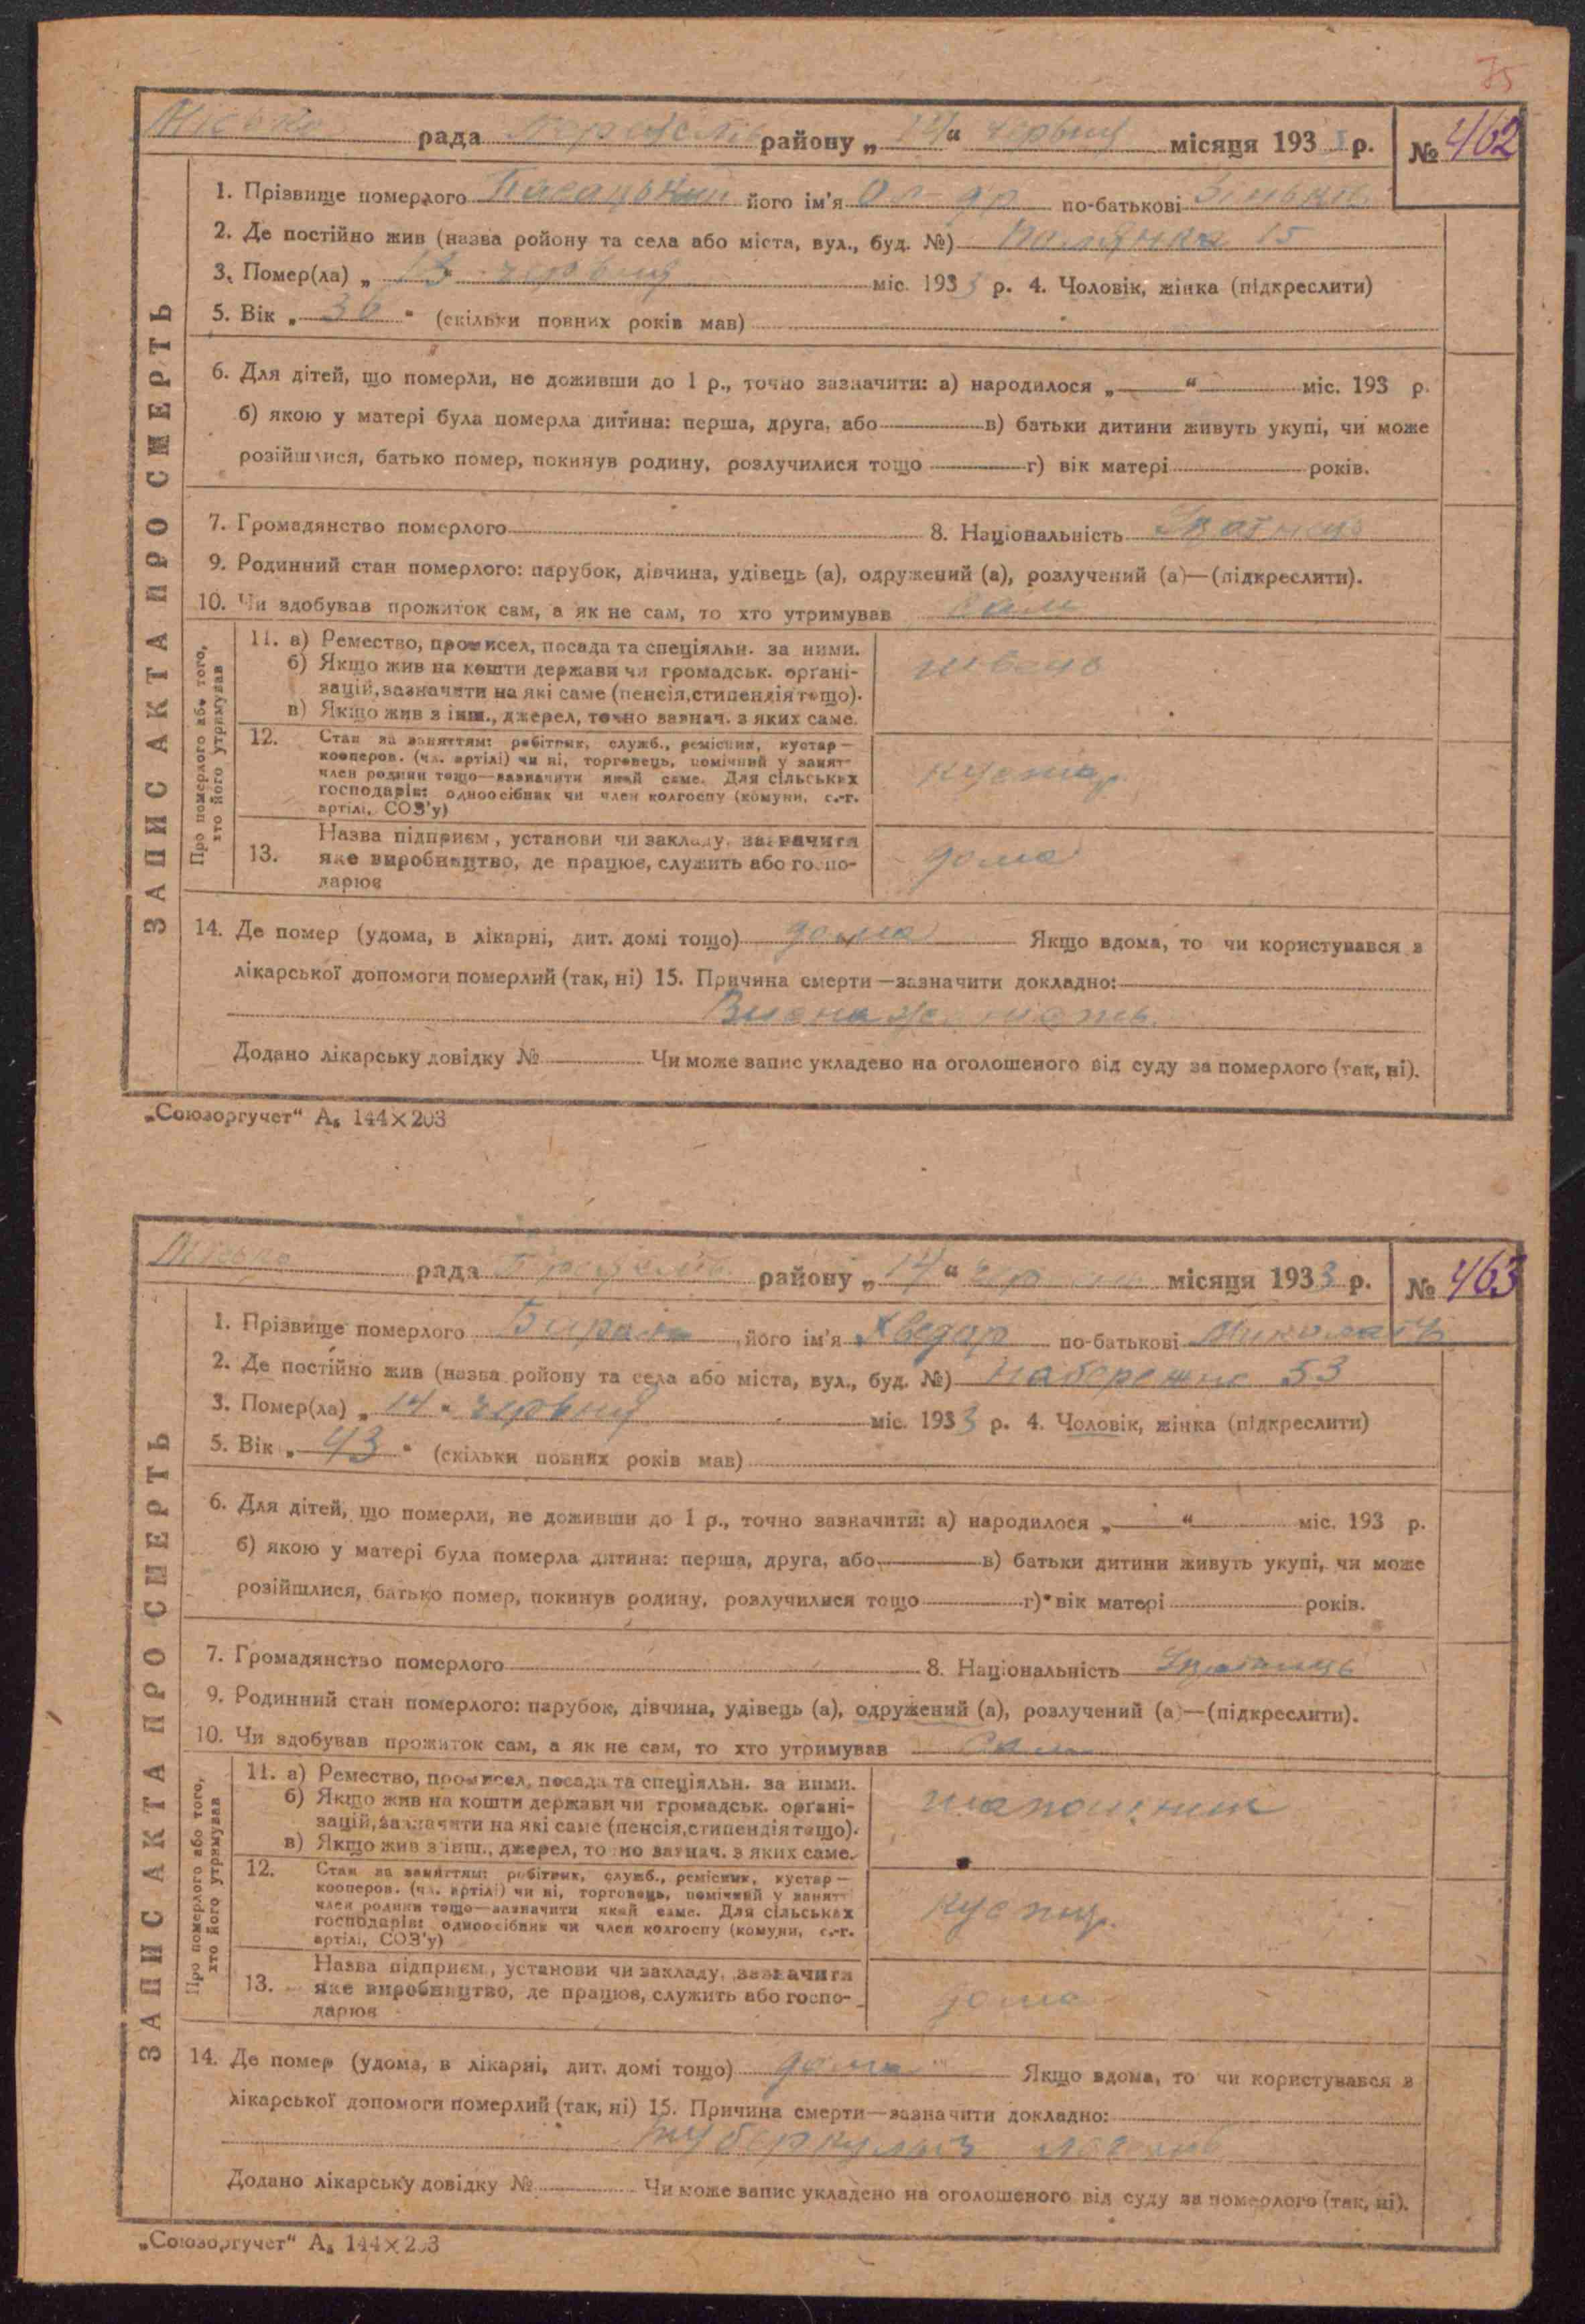 75
Місько рада Переяслів району „14“ червня місяця 1933 р. № 462
1. Прізвище померлого його ім'я по-батькові
2. Де постійно жив (назва ройону та села або міста, вул., буд. №) 15
3. Помер(ла) „13“ червня міс. 1933 р. 4. Чоловік, жінка (підкреслити)
5. Вік „36“ (скільки повних років мав)
6. Для дітей, що померли, не доживши до 1 р., точно зазначити: а) народилося „ “ міс. 193 р.
б) якою у матері була померла дитина: перша, друга, або в) батьки дитини живуть укупі, чи може
розійшлися, батько помер, покинув родину, розлучилися тощо г) вік матері років.
7. Громадянство померлого 8. Національність
9. Родинний стан померлого: парубок, дівчина, удівець (а), одружений (а), розлучений (а)—(підкреслити).
10. Чи здобував прожиток сам, а як не сам, то хто утримував сам
Про померлого або того, хто його утримував
11. а) Ремество, промисел, посада та спеціяльн. за ними.
б) Якщо жив на кошти держави чи громадськ. органі-
зацій, зазначити на які саме (пенсія, стипендія тощо).
в) Якщо жив з інш., джерел, точно зазнач. з яких саме.
швець
12. Стан за заняттям: робітник, служб., ремісник, кустар—
кооперов. (чл. артілі) чи ні, торговець, помічний у занят-
член родини тощо—зазначити який саме. Для сільських
господарів: одноосібник чи член колгоспу (комуни, с.-г.
артілі, СОЗ'у)
кустар
13. Назва підприєм., установи чи закладу, зазначити
яке виробництво, де працює, служить або госпо-
дарює
дома
14. Де помер (удома, в лікарні, дит. домі тощо) дома Якщо вдома, то чи користувався з
лікарської допомоги померлий (так, ні) 15. Причина смерти—зазначити докладно:
Виснаженість
Додано лікарську довідку № Чи може запис укладено на оголошеного від суду за померлого (так, ні).
ЗАПИС АКТА ПРО СМЕРТЬ
„Союзоргучет“ А₅ 144×203
Місько рада району „14“ червня місяця 1933 р. № 463
1. Прізвище померлого його ім'я Хведор по-батькові
2. Де постійно жив (назва ройону та села або міста, вул., буд. №) Набережна 53
3. Помер(ла) „14“ червня міс. 1933 р. 4. Чоловік, жінка (підкреслити)
5. Вік „43“ (скільки повних років мав)
6. Для дітей, що померли, не доживши до 1 р., точно зазначити: а) народилося „ “ міс. 193 р.
б) якою у матері була померла дитина: перша, друга, або в) батьки дитини живуть укупі, чи може
розійшлися, батько помер, покинув родину, розлучилися тощо г) вік матері років.
7. Громадянство померлого 8. Національність
9. Родинний стан померлого: парубок, дівчина, удівець (а), одружений (а), розлучений (а)—(підкреслити).
10. Чи здобував прожиток сам, а як не сам, то хто утримував сам
Про померлого або того, хто його утримував
11. а) Ремество, промисел, посада та спеціяльн. за ними.
б) Якщо жив на кошти держави чи громадськ. органі-
зацій, зазначити на які саме (пенсія, стипендія тощо).
в) Якщо жив з інш., джерел, точно зазнач. з яких саме.
12. Стан за заняттям: робітник, служб., ремісник, кустар—
кооперов. (чл. артілі) чи ні, торговець, помічний у занят-
член родини тощо—зазначити який саме. Для сільських
господарів: одноосібник чи член колгоспу (комуни, с.-г.
артілі, СОЗ'у)
кустар
13. Назва підприєм., установи чи закладу, зазначити
яке виробництво, де працює, служить або госпо-
дарює
дома
14. Де помер (удома, в лікарні, дит. домі тощо) дома Якщо вдома, то чи користувався з
лікарської допомоги померлий (так, ні) 15. Причина смерти—зазначити докладно:
туберкульоз легенів
Додано лікарську довідку № Чи може запис укладено на оголошеного від суду за померлого (так, ні).
ЗАПИС АКТА ПРО СМЕРТЬ
„Союзоргучет“ А₅ 144×203